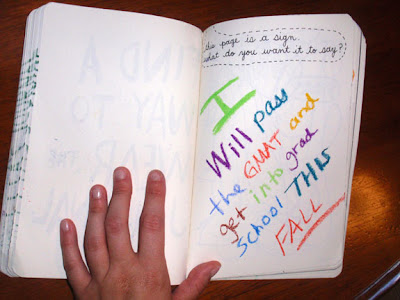 FIND A
WAY TO
WEAR THE
this page is a sign.
what do you want it to say?
I
Will pass
the GMAT and
get into grad
school THIS
FALL